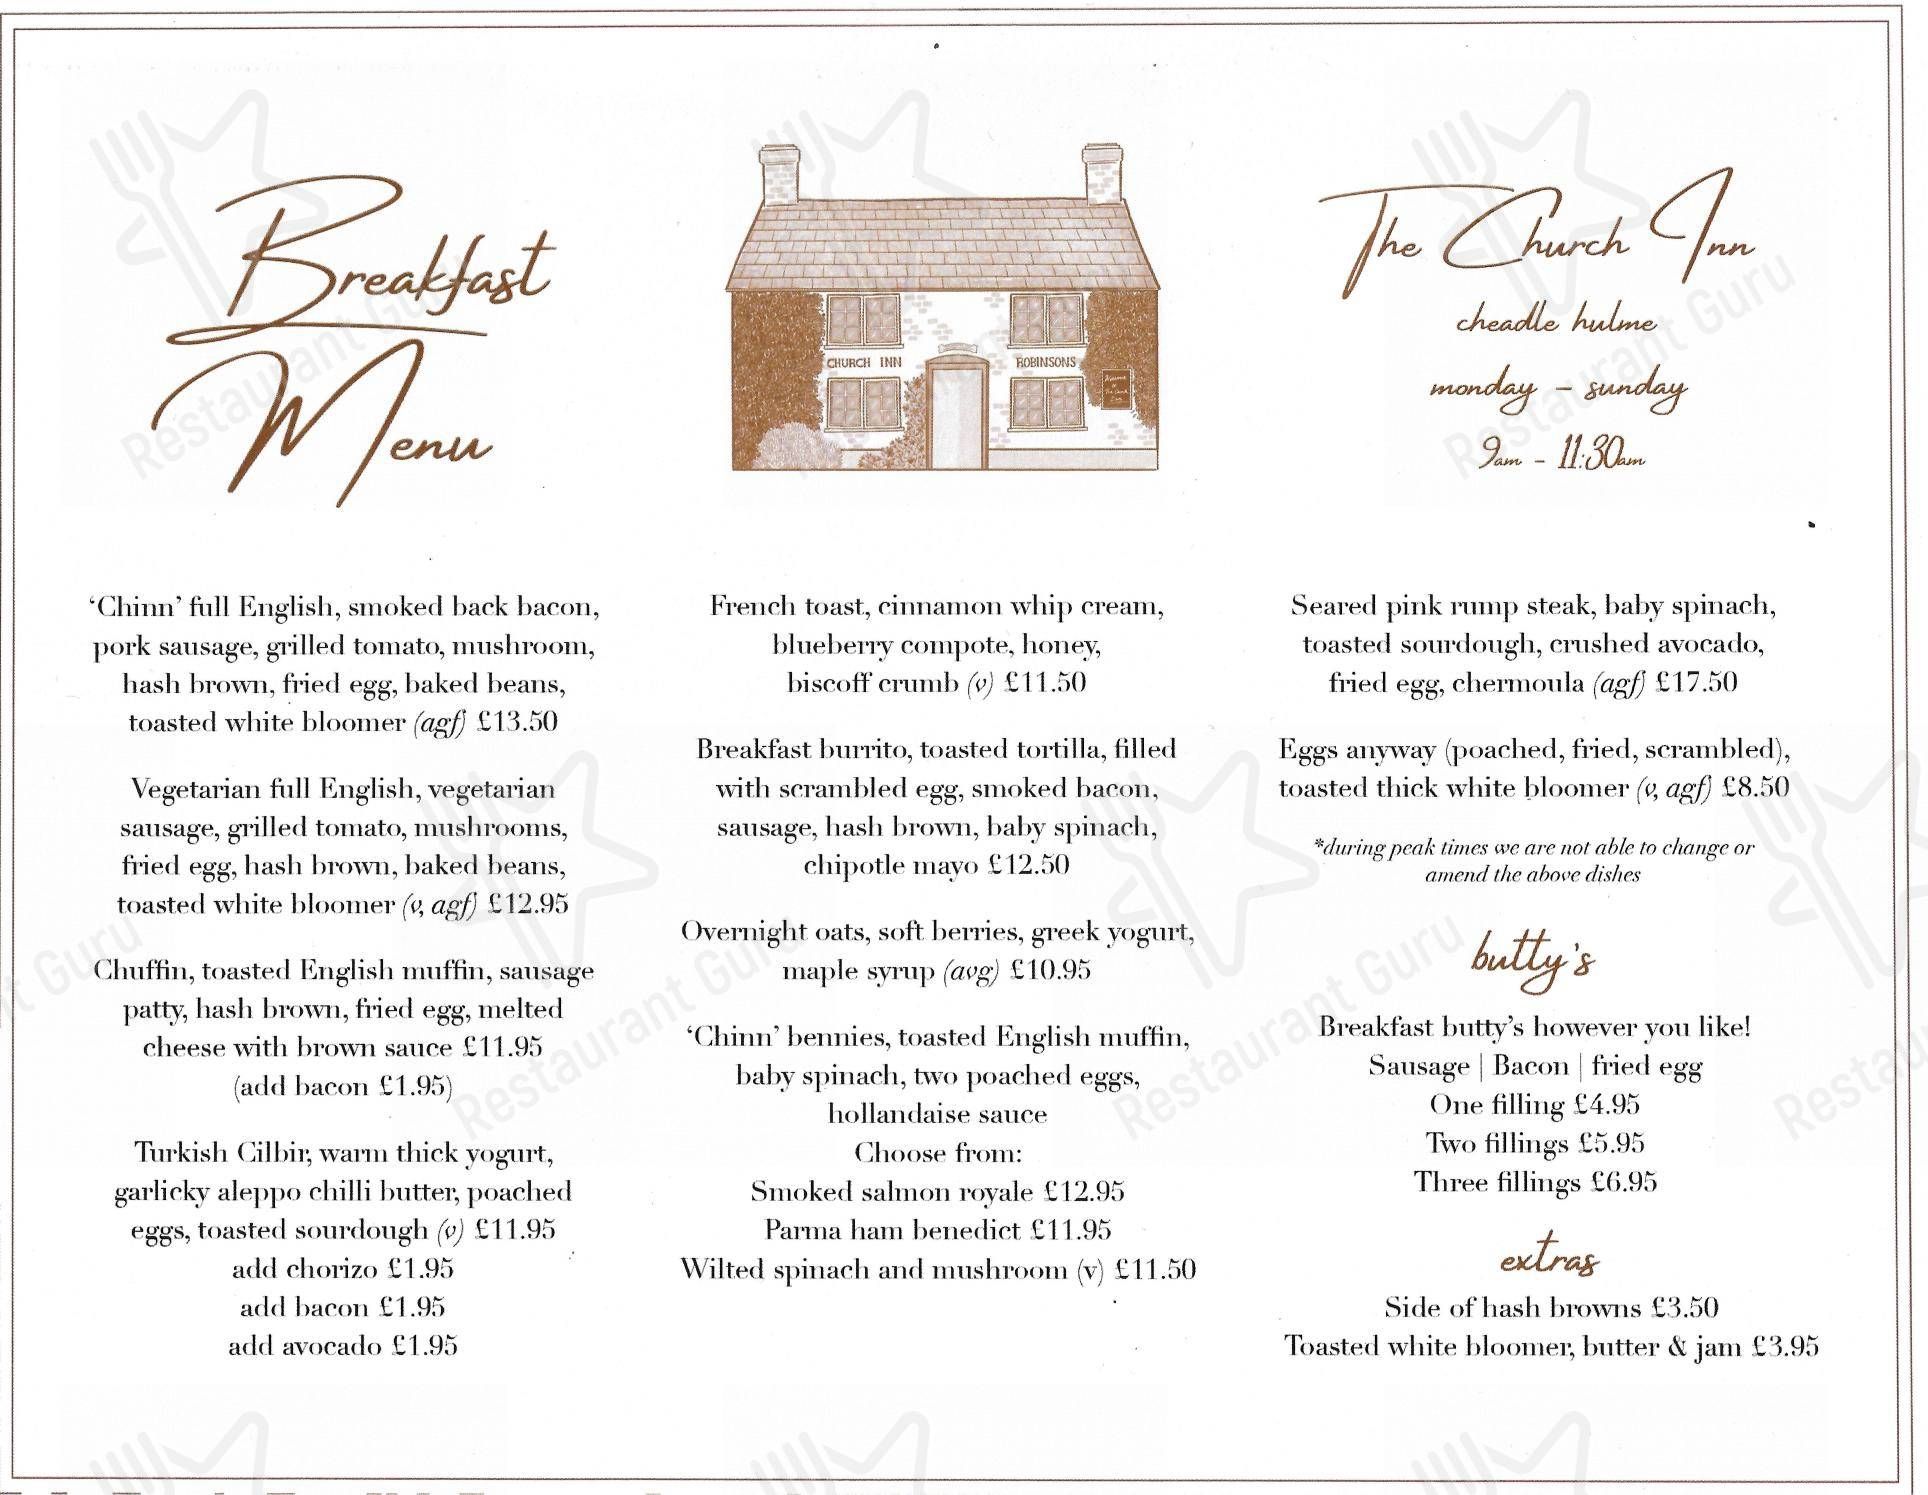 Breakfast
Menu
CHURCH INN
ROBINSONS
The Church Inn
cheadle hulme
monday – sunday
9am – 11:30am
‘Chinn’ full English, smoked back bacon,
pork sausage, grilled tomato, mushroom,
hash brown, fried egg, baked beans,
toasted white bloomer (agf) £13.50
Vegetarian full English, vegetarian
sausage, grilled tomato, mushrooms,
fried egg, hash brown, baked beans,
toasted white bloomer (v, agf) £12.95
Chuffin, toasted English muffin, sausage
patty, hash brown, fried egg, melted
cheese with brown sauce £11.95
(add bacon £1.95)
Turkish Cilbir, warm thick yogurt,
garlicky aleppo chilli butter, poached
eggs, toasted sourdough (v) £11.95
add chorizo £1.95
add bacon £1.95
add avocado £1.95
French toast, cinnamon whip cream,
blueberry compote, honey,
biscoff crumb (v) £11.50
Breakfast burrito, toasted tortilla, filled
with scrambled egg, smoked bacon,
sausage, hash brown, baby spinach,
chipotle mayo £12.50
Overnight oats, soft berries, greek yogurt,
maple syrup (avg) £10.95
‘Chinn’ bennies, toasted English muffin,
baby spinach, two poached eggs,
hollandaise sauce
Choose from:
Smoked salmon royale £12.95
Parma ham benedict £11.95
Wilted spinach and mushroom (v) £11.50
Seared pink rump steak, baby spinach,
toasted sourdough, crushed avocado,
fried egg, chermoula (agf) £17.50
Eggs anyway (poached, fried, scrambled),
toasted thick white bloomer (v, agf) £8.50
*during peak times we are not able to change or
amend the above dishes
butty's
Breakfast butty’s however you like!
Sausage | Bacon | fried egg
One filling £4.95
Two fillings £5.95
Three fillings £6.95
extras
Side of hash browns £3.50
Toasted white bloomer, butter & jam £3.95
Restaurant Guru
Restaurant Guru
Restaurant Guru
Restaurant Guru